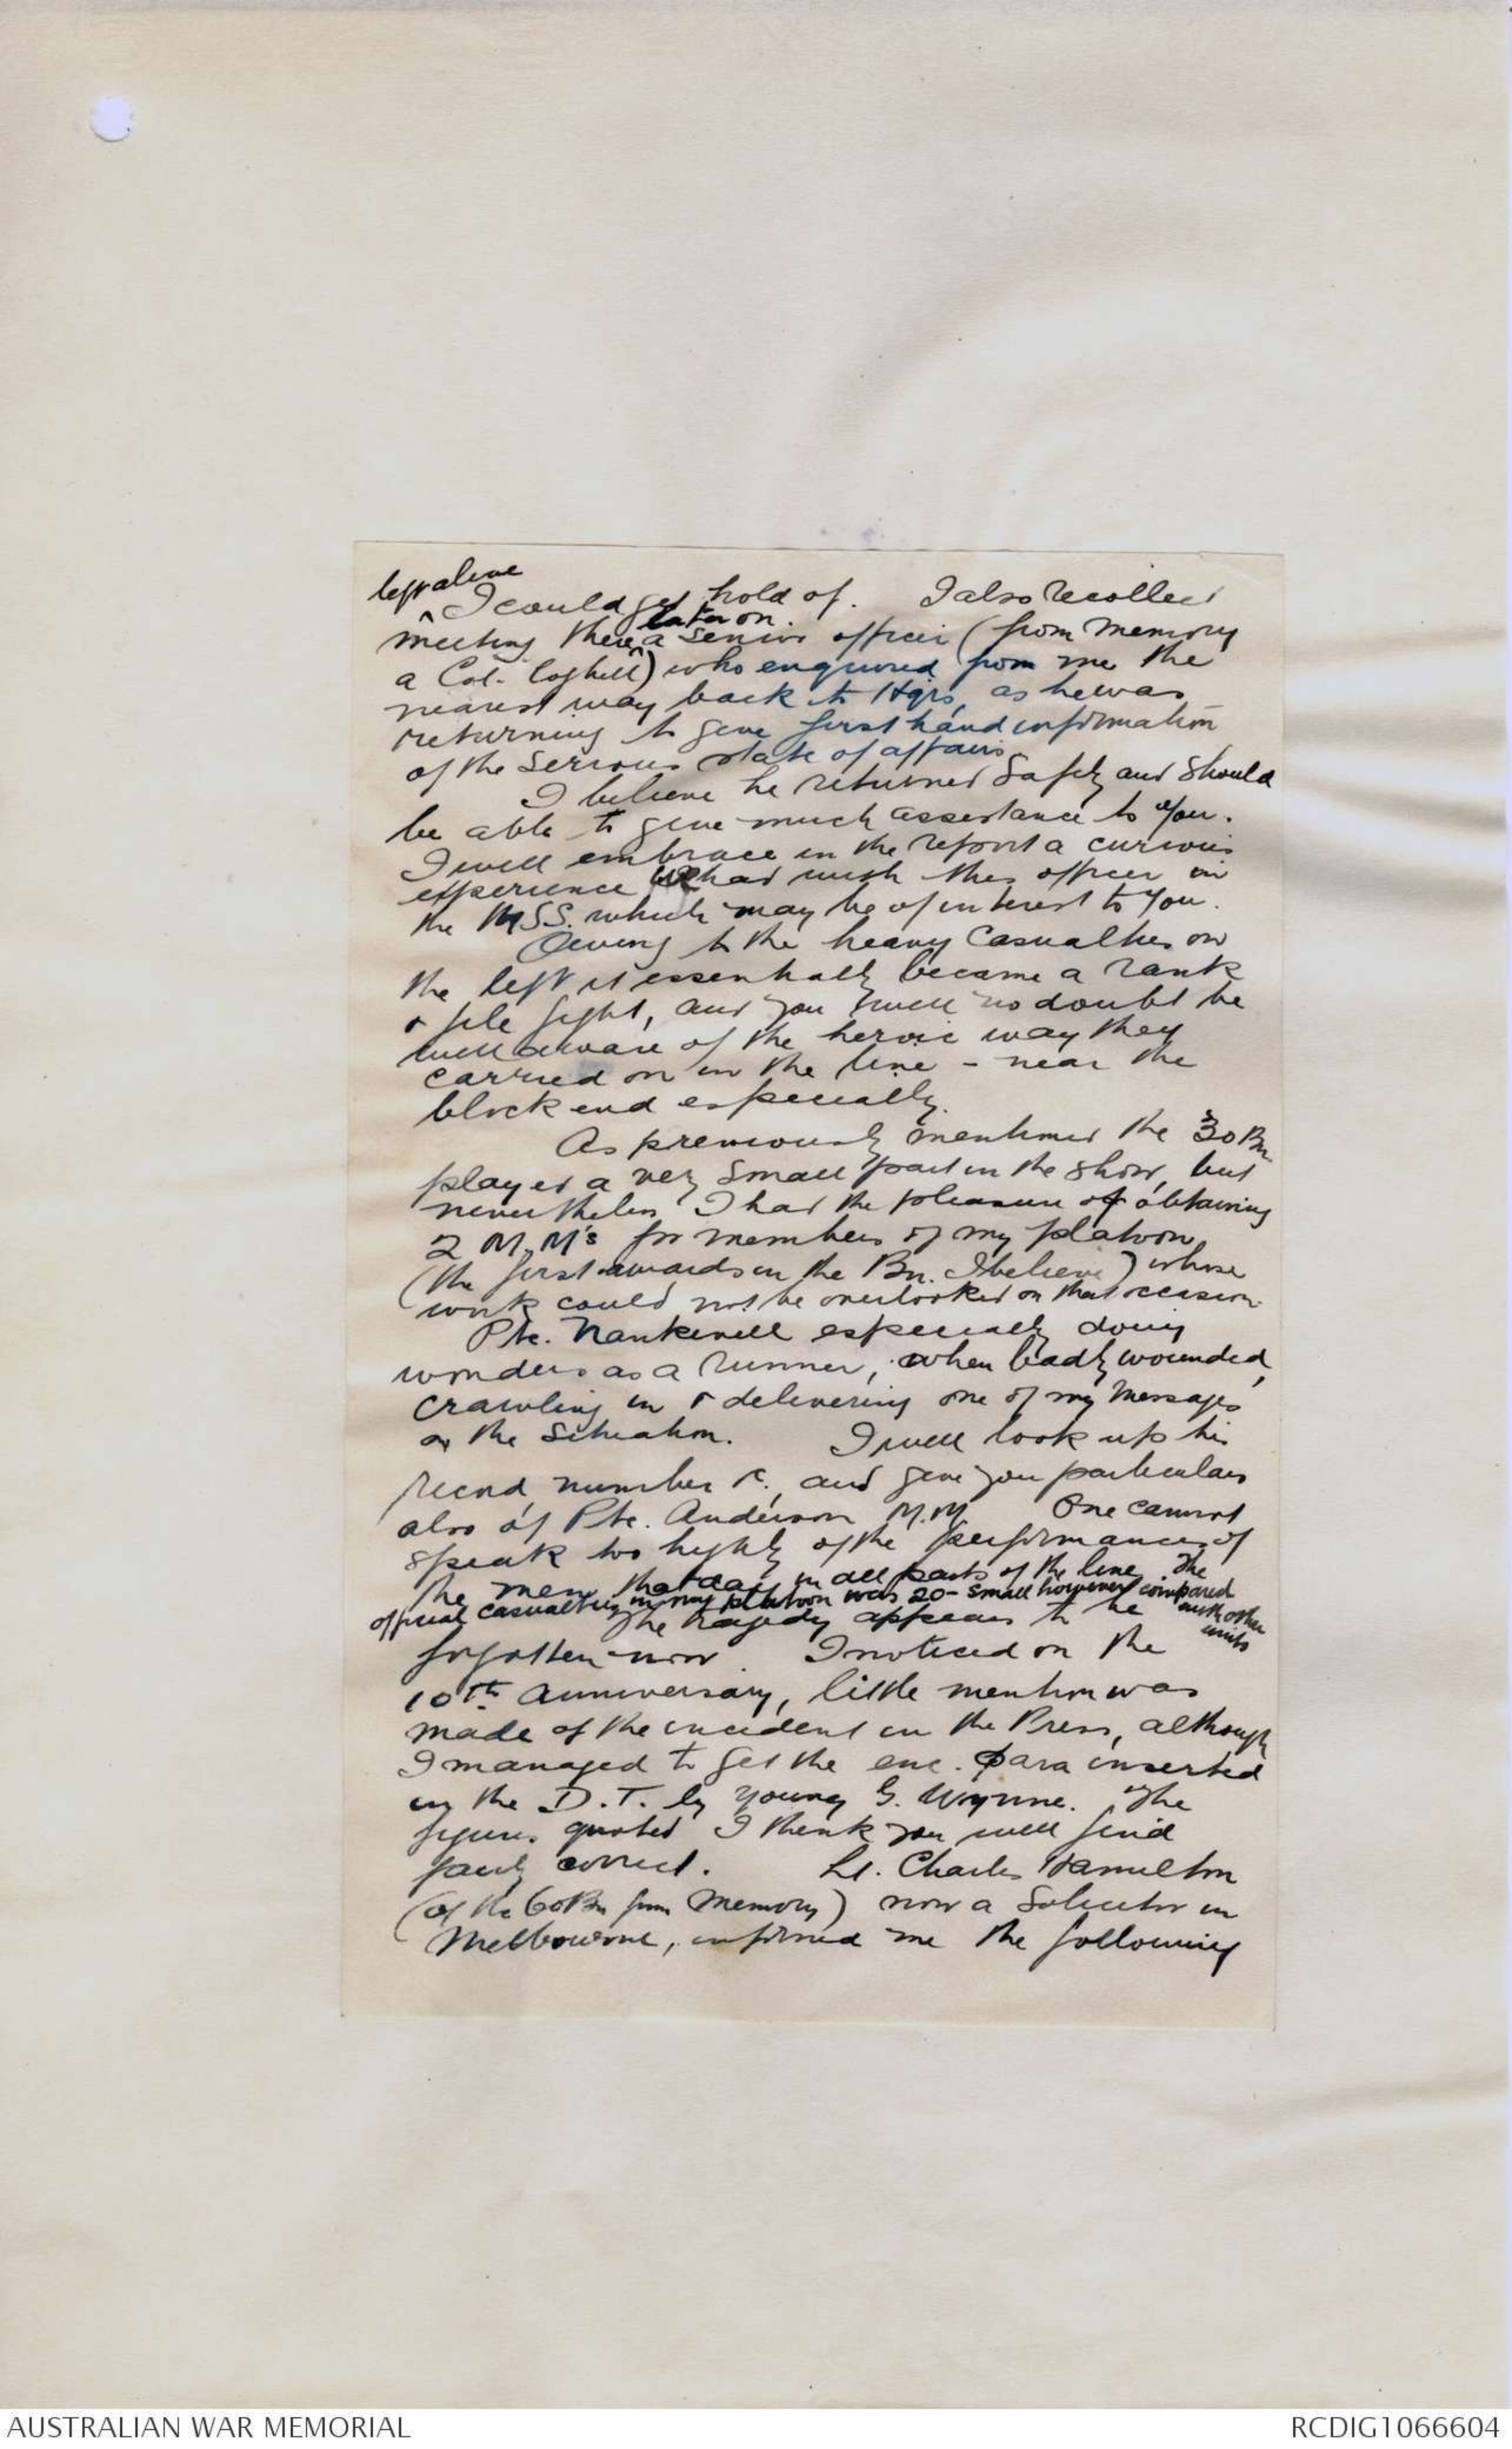 left alive
^ I could get hold of. I also recollect
later on.
meeting there ^ a senior officer (from memory
a Col. Coghill) who enquired from me the
nearest way back to Hqrs, as he was
returning to give first hand information
of the serious state of affairs.
I believe he returned safely and should
be able to give much assistance to you.
I will embrace in the report a curious
experience we had with this officer in
the MSS. which may be of interest to you.
Owing to the heavy casualties on
the left it essentially became a rank
& file fight, and you will no doubt be
well aware of the heroic way they
carried on in the line - near the
block end especially.
As previously mentioned the 30 Bn
played a very small part in the show, but
nevertheless I had the pleasure of obtaining
2 M.M's for members of my platoon,
(the first awards in the Bn. I believe) whose
work could not be overlooked on that occasion.
Pte. Nankivell especially doing
wonders as a runner, when badly wounded,
crawling in & delivering one of my messages
on the situation. I will look up his
record number &c. and give you particulars
also of Pte. Anderson M.M. One cannot
speak too highly of the performances of
the men that day in all parts of the line. The
official casualties in my platoon was 20 - small however compared
with other
units
The tragedy appears to be
forgotten now. I noticed on the
10th anniversary, little mention was
made of the incident in the Press, although
I managed to get the enc. para inserted
in the D.T. by young G. Wynne. The
figures quoted I think you will find
fairly correct. Lt. Charles Hamilton
(of the 60 Bn from memory) now a Solicitor in
Melbourne, informed me the following
AUSTRALIAN WAR MEMORIAL
RCDIG1066604